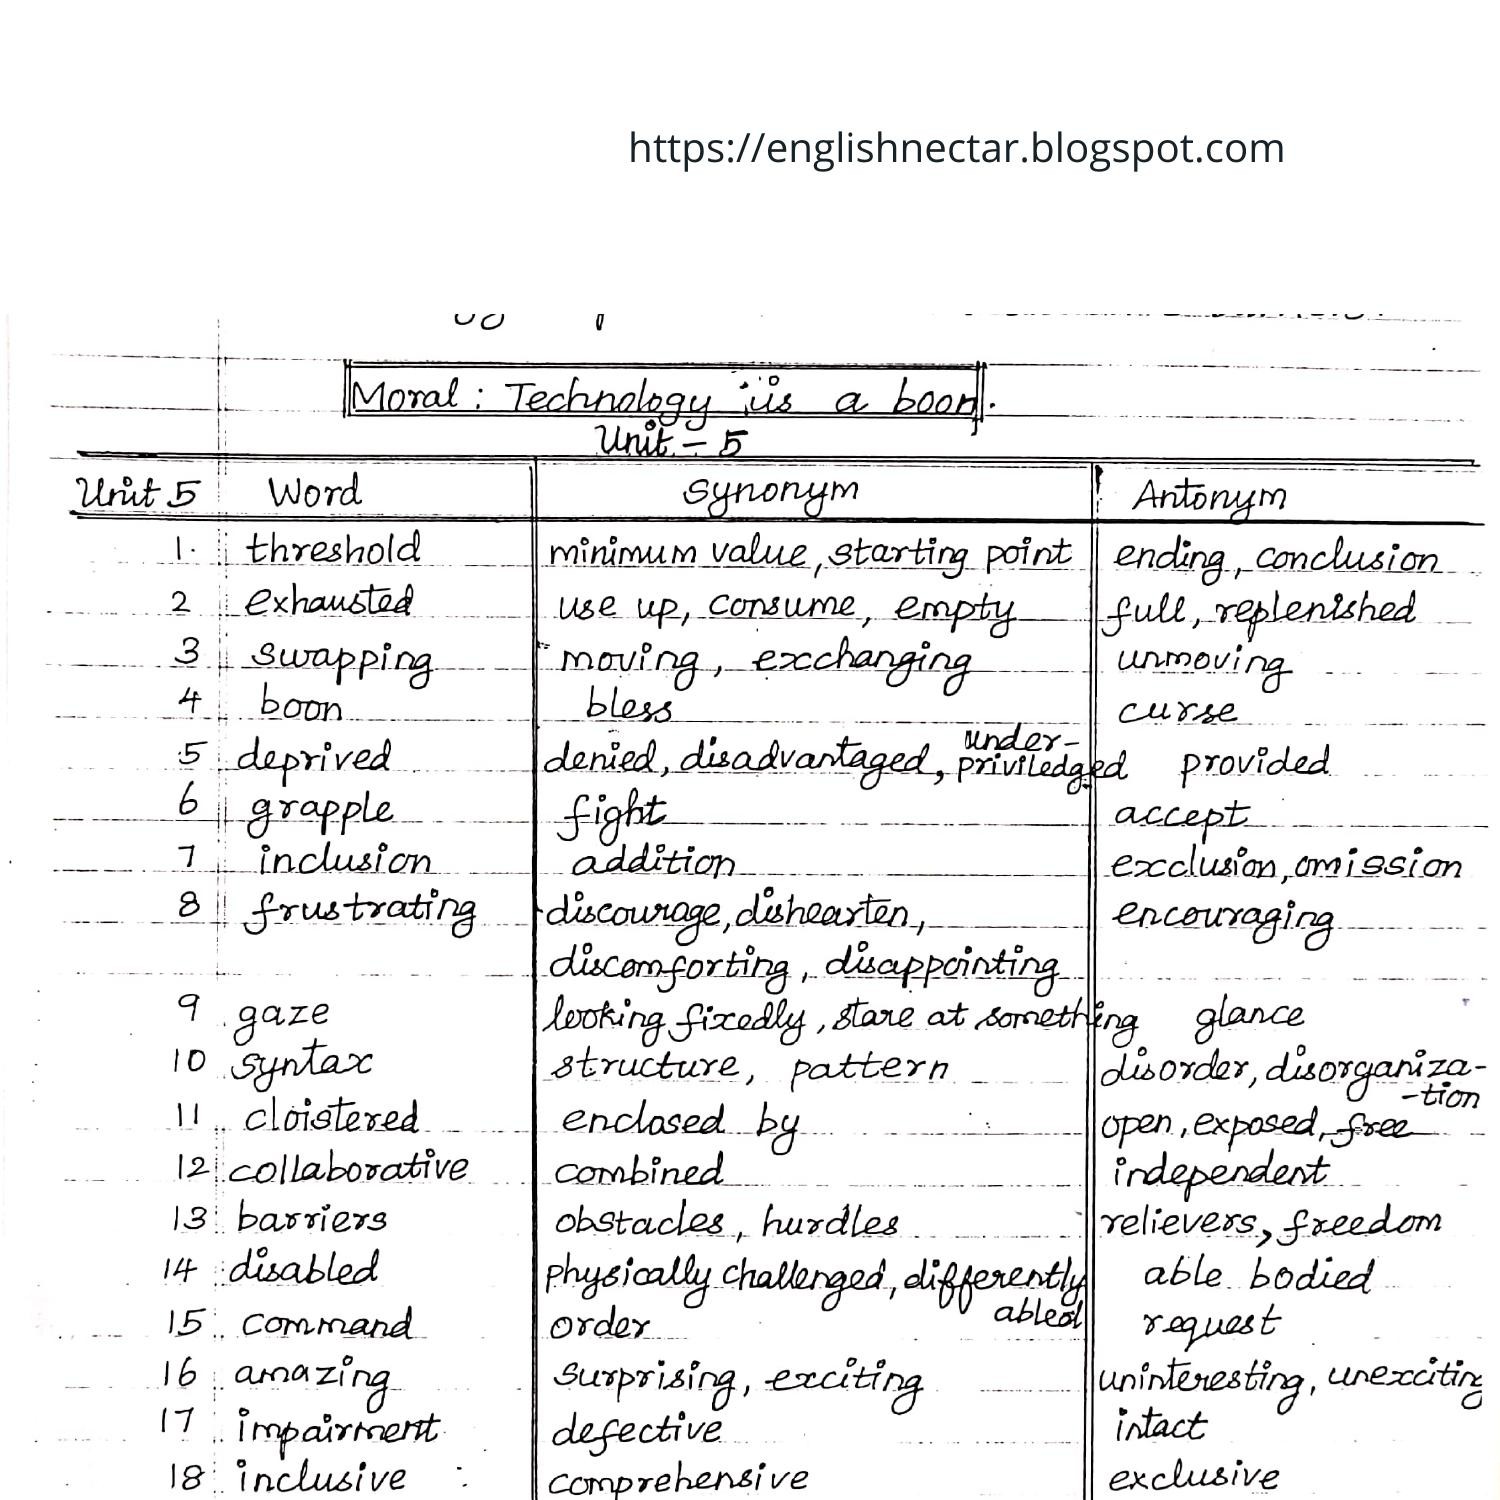 https://englishnectar.blogspot.com
Moral : Technology is a boon.
Unit - 5
Unit 5 Word Synonym Antonym
1. threshold minimum value, starting point ending, conclusion
2 exhausted use up, consume, empty full, replenished
3 swapping moving, exchanging unmoving
4 boon bless curse
5 deprived denied, disadvantaged, under-priviledged provided
6 grapple fight accept
7 inclusion addition exclusion, omission
8 frustrating discourage, dishearten, encouraging
discomforting, disappointing
9 gaze looking fixedly, stare at something glance
10 syntax structure, pattern disorder, disorganiza-
-tion
11 cloistered enclosed by open, exposed, free
12 collaborative combined independent
13 barriers obstacles, hurdles relievers, freedom
14 disabled physically challenged, differently able bodied
abled
15 command order request
16 amazing surprising, exciting uninteresting, unexciting
17 impairment defective intact
18 inclusive comprehensive exclusive